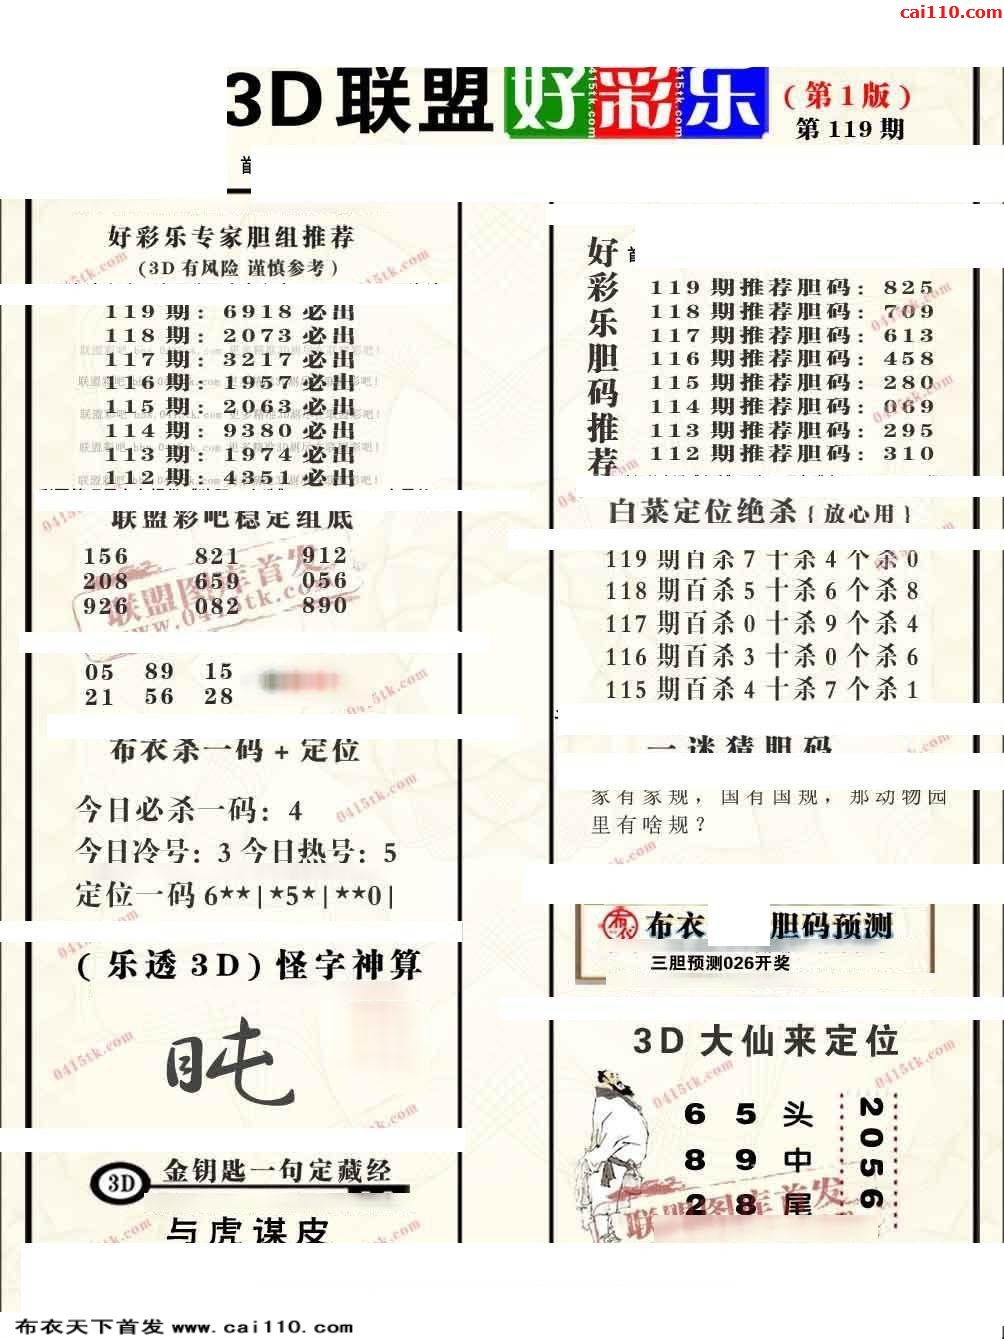 cai110.com
3D联盟 好彩乐 (第1版)
第119期
首
好彩乐专家胆组推荐
(3D有风险 谨慎参考)
119期: 6918必出
118期: 2073必出
117期: 3217必出
116期: 1957必出
115期: 2063必出
114期: 9380必出
113期: 1974必出
112期: 4351必出
联盟彩吧稳定组底
156 821 912
208 659 056
926 082 890
05 89 15
21 56 28
布衣杀一码+定位
今日必杀一码: 4
今日冷号: 3 今日热号: 5
定位一码 6**|*5*|**0|
(乐透3D)怪字神算
3D 金钥匙一句定藏经
与虎谋皮
好彩乐胆码推荐
119期推荐胆码: 825
118期推荐胆码: 709
117期推荐胆码: 613
116期推荐胆码: 458
115期推荐胆码: 280
114期推荐胆码: 069
113期推荐胆码: 295
112期推荐胆码: 310
白菜定位绝杀{放心用}
119期百杀7十杀4个杀0
118期百杀5十杀6个杀8
117期百杀0十杀9个杀4
116期百杀3十杀0个杀6
115期百杀4十杀7个杀1
一迷猜胆码
家有家规，国有国规，那动物园
里有啥规？
布衣 布衣 胆码预测
三胆预测026开奖
3D大仙来定位
6 5 头
8 9 中
2 8 尾
2056
联盟图库首发
www.0415tk.com
0415tk.com
布衣天下首发 www.cai110.com